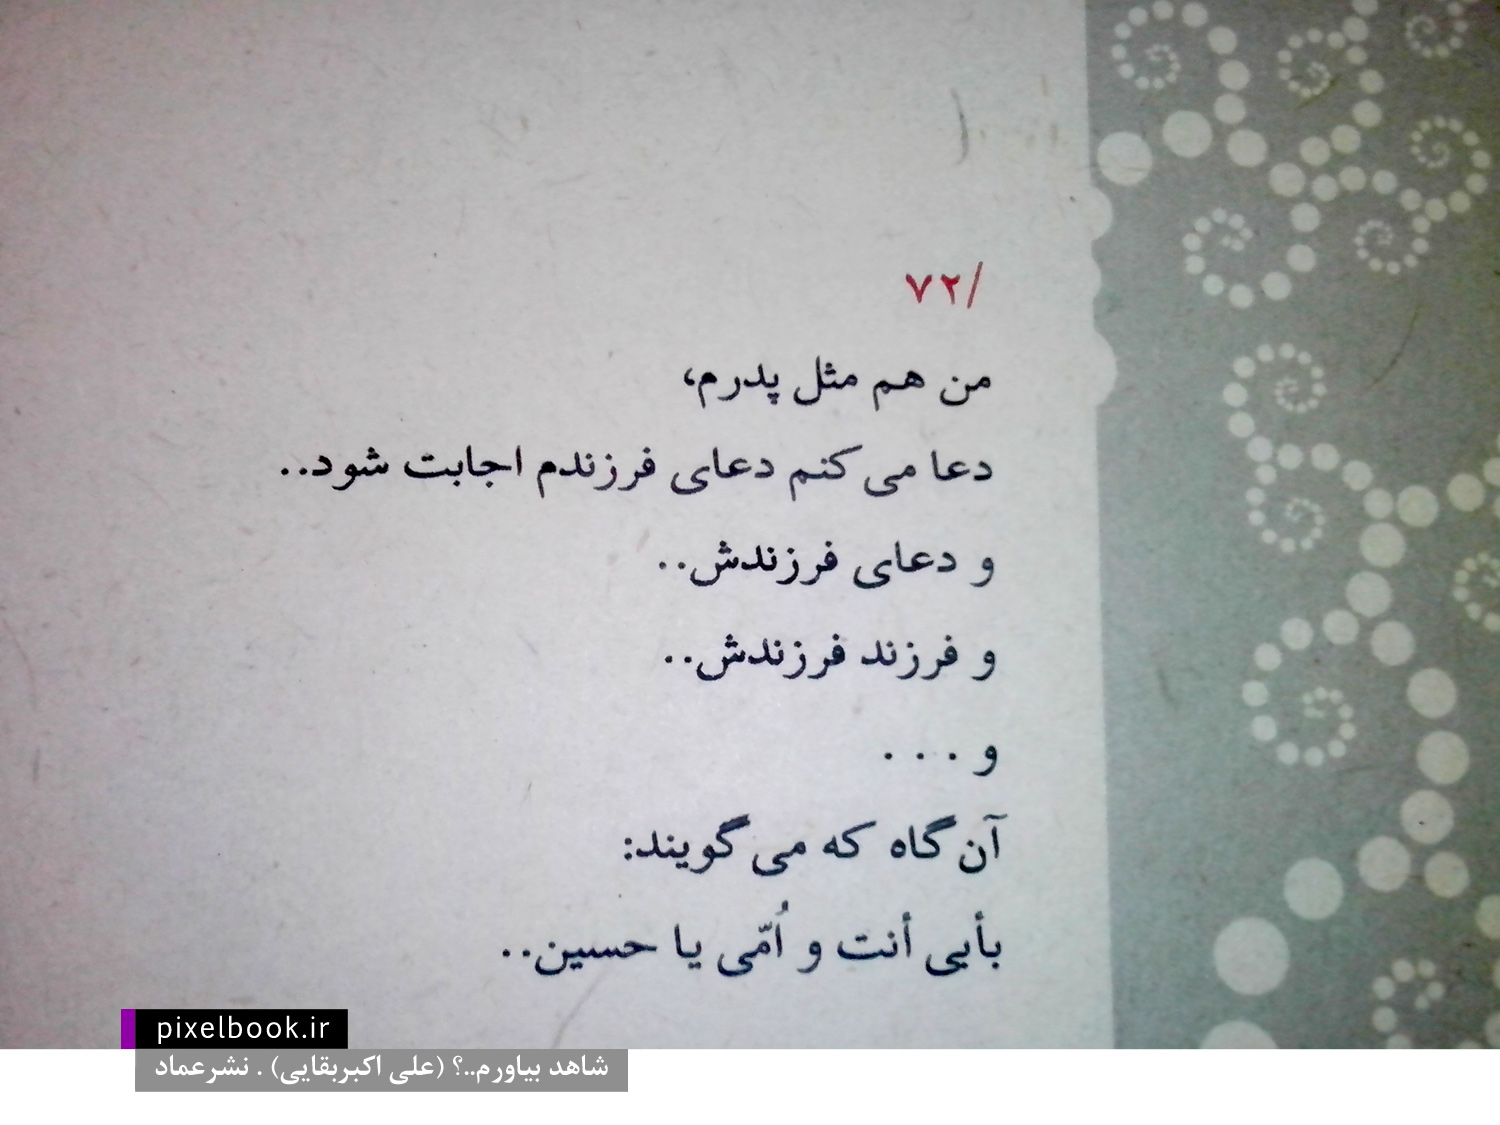 /۷۲
من هم مثل پدرم،
دعا می‌کنم دعای فرزندم اجابت شود..
و دعای فرزندش..
و فرزند فرزندش..
و . . .
آن‌گاه که می‌گویند:
بأبی أنت و اُمّی یا حسین..
pixelbook.ir
شاهد بیاورم..؟ (علی اکبربقایی) . نشرعماد